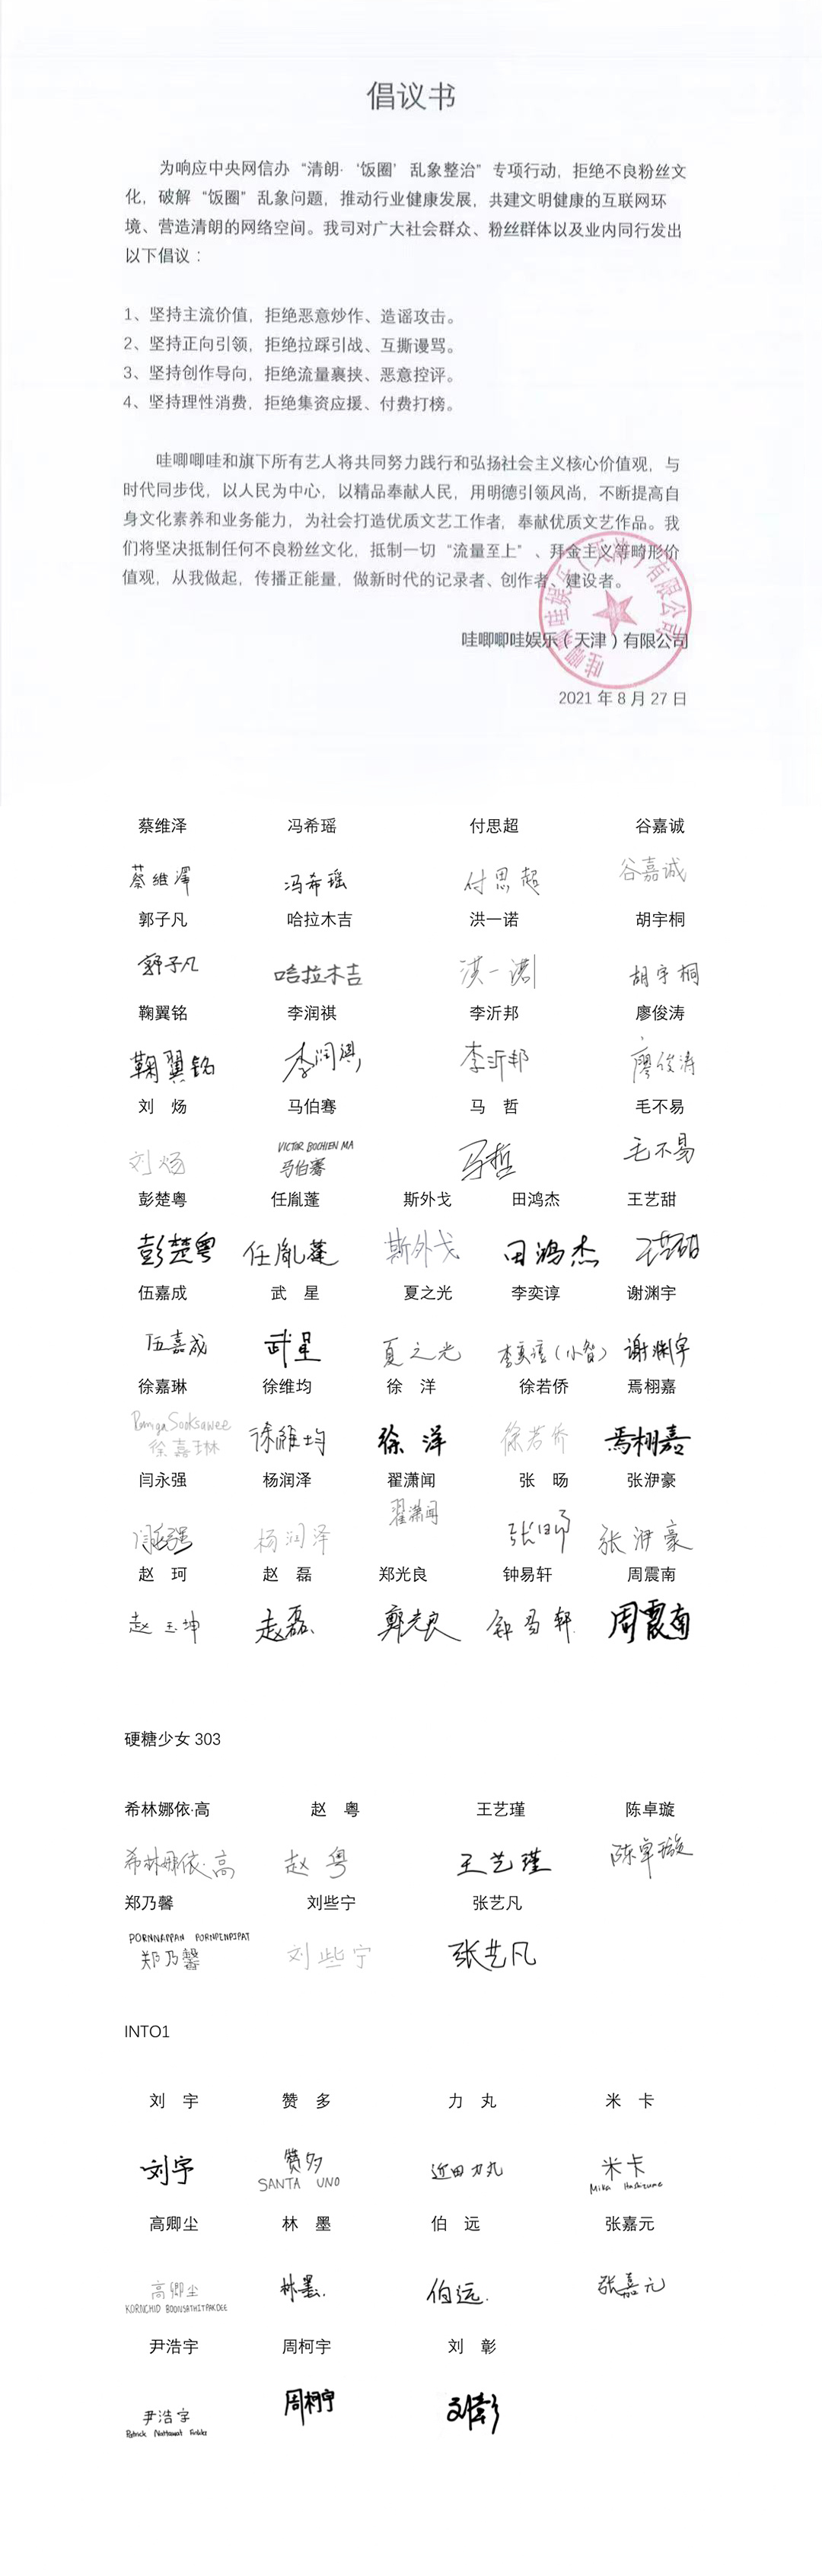 倡议书
为响应中央网信办“清朗·‘饭圈’乱象整治”专项行动，拒绝不良粉丝文
化，破解“饭圈”乱象问题，推动行业健康发展，共建文明健康的互联网环
境、营造清朗的网络空间。我司对广大社会群众、粉丝群体以及业内同行发出
以下倡议：
1、坚持主流价值，拒绝恶意炒作、造谣攻击。
2、坚持正向引领，拒绝拉踩引战、互撕谩骂。
3、坚持创作导向，拒绝流量裹挟、恶意控评。
4、坚持理性消费，拒绝集资应援、付费打榜。
哇唧唧哇和旗下所有艺人将共同努力践行和弘扬社会主义核心价值观，与
时代同步伐，以人民为中心，以精品奉献人民，用明德引领风尚，不断提高自
身文化素养和业务能力，为社会打造优质文艺工作者，奉献优质文艺作品。我
们将坚决抵制任何不良粉丝文化，抵制一切“流量至上”、拜金主义等畸形价
值观，从我做起，传播正能量，做新时代的记录者、创作者、建设者。
哇唧唧哇娱乐（天津）有限公司
2021 年 8 月 27 日
蔡维泽 冯希瑶 付思超 谷嘉诚
蔡維澤 冯希瑶 付思超 谷嘉诚
郭子凡 哈拉木吉 洪一诺 胡宇桐
郭子凡 哈拉木吉 洪一诺 胡宇桐
鞠翼铭 李润祺 李沂邦 廖俊涛
鞠翼铭 李润祺 李沂邦 廖俊涛
刘 炀 马伯骞 马 哲 毛不易
刘炀 VICTOR BOCHIEN MA 马伯骞 马哲 毛不易
彭楚粤 任胤蓬 斯外戈 田鸿杰 王艺甜
彭楚粤 任胤蓬 斯外戈 田鸿杰
伍嘉成 武 星 夏之光 李奕谆 谢渊宇
伍嘉成 武星 夏之光 李奕谆（小智） 谢渊宇
徐嘉琳 徐维均 徐 洋 徐若侨 焉栩嘉
徐嘉琳 徐維均 徐洋 徐若侨 焉栩嘉
闫永强 杨润泽 翟潇闻 张 旸 张洢豪
闫永强 杨润泽 翟潇闻 张洢豪
赵 珂 赵 磊 郑光良 钟易轩 周震南
赵磊 鄭光良 钟易轩 周震南
硬糖少女 303
希林娜依·高 赵 粤 王艺瑾 陈卓璇
希林娜依·高 赵粤 王艺瑾 陈卓璇
郑乃馨 刘些宁 张艺凡
郑乃馨 刘些宁 张艺凡
INTO1
刘 宇 赞 多 力 丸 米 卡
刘宇 赞多 SANTA UNO 近田力丸 米卡 Mika Hashizume
高卿尘 林 墨 伯 远 张嘉元
高卿尘 KORNCHID BOONSATHITPAKDEE 林墨 伯远 张嘉元
尹浩宇 周柯宇 刘 彰
尹浩宇 周柯宇 刘彰